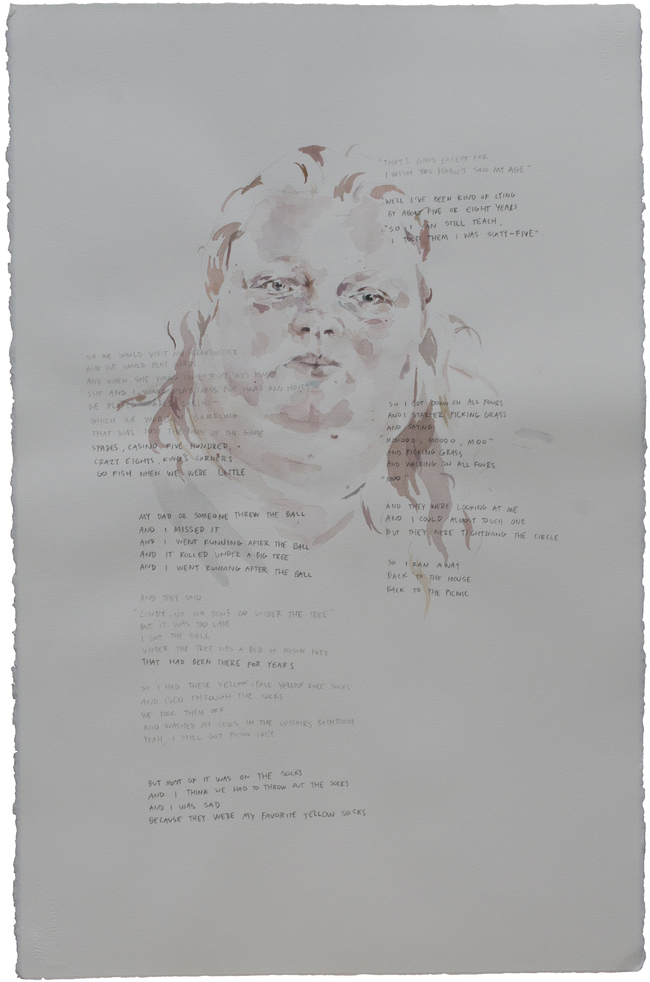 "THAT'S GOOD EXCEPT FOR
I WISH YOU HADN'T SAID MY AGE"
WELL I'VE BEEN KIND OF LYING
BY ABOUT FIVE OR EIGHT YEARS
"SO I CAN STILL TEACH,
I TOLD THEM I WAS SIXTY-FIVE"
SO WE WOULD VISIT MY GRANDMOTHER
AND WE WOULD PLAY
AND WHEN SHE
SHE AND I WOULD PLAY CARDS FOR HOURS AND HOURS
WE PLAYED
WHICH WE WERE
THAT WAS JUST THE NAME OF THE GAME
SPADES, CASINO, FIVE HUNDRED,
CRAZY EIGHTS, KING'S CORNERS
GO FISH WHEN WE WERE LITTLE
SO I GOT DOWN ON ALL FOURS
AND I STARTED PICKING GRASS
AND SAYING
"MOOOOO, MOOOO, MOO"
AND PICKING GRASS
AND WALKING ON ALL FOURS
"MOO
AND THEY WERE LOOKING AT ME
AND I COULD ALMOST TOUCH ONE
BUT THEY WERE TIGHTENING THE CIRCLE
SO I RAN AWAY
BACK TO THE HOUSE
BACK TO THE PICNIC
MY DAD OR SOMEONE THREW THE BALL
AND I MISSED IT
AND I WENT RUNNING AFTER THE BALL
AND IT ROLLED UNDER A BIG TREE
AND I WENT RUNNING AFTER THE BALL
AND THEY SAID
"CINDY, NO NO DON'T GO UNDER THE TREE"
BUT IT WAS TOO LATE
I GOT THE BALL
UNDER THE TREE WAS A BED OF POISON IVY
THAT HAD BEEN THERE FOR YEARS
SO I HAD THESE YELLOW, PALE YELLOW KNEE SOCKS
AND EVEN THROUGH THE SOCKS
WE TOOK THEM OFF
AND WASHED MY LEGS IN THE UPSTAIRS BATHROOM
YEAH, I STILL GOT POISON IVY
BUT MOST OF IT WAS ON THE SOCKS
AND I THINK WE HAD TO THROW OUT THE SOCKS
AND I WAS SAD
BECAUSE THEY WERE MY FAVORITE YELLOW SOCKS